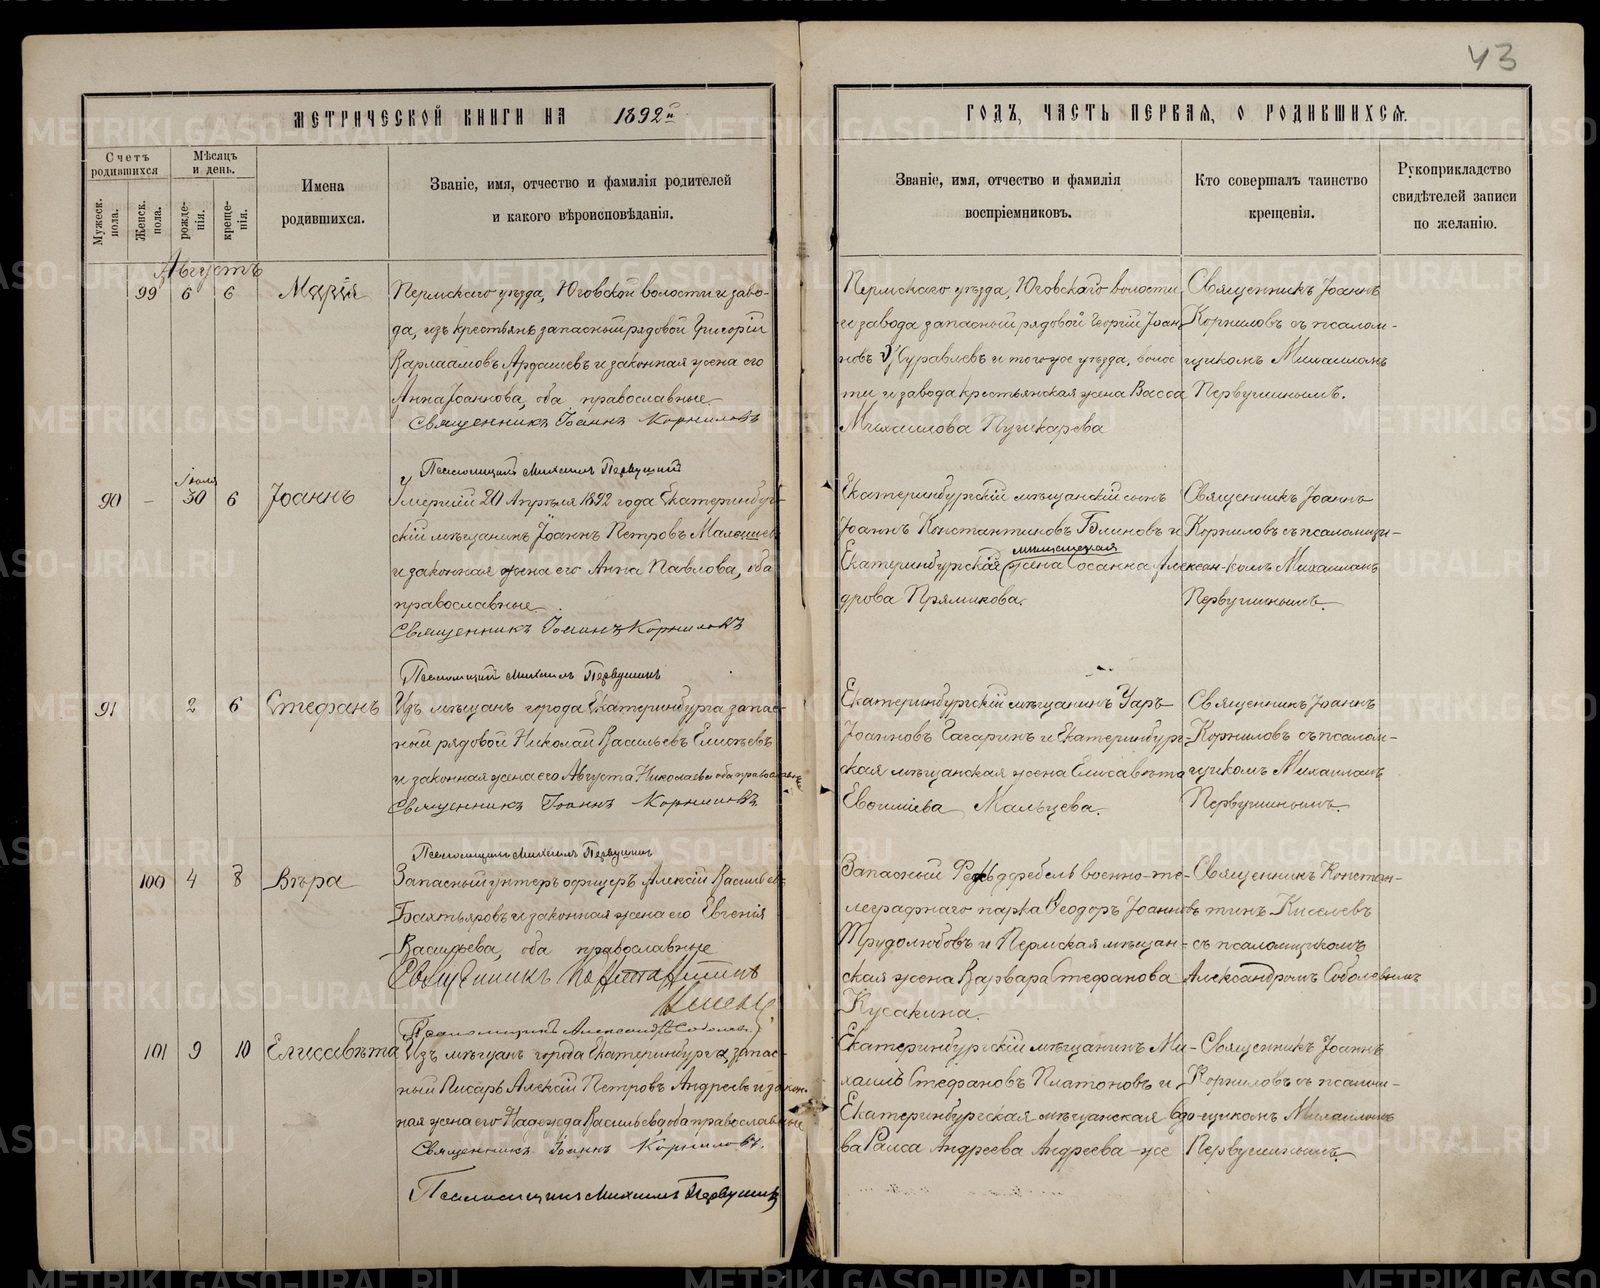 43
МЕТРИЧЕСКОЙ КНИГИ НА 1892й
ГОДЪ, ЧАСТЬ ПЕРВАЯ, О РОДИВШИХСЯ.
Счетъ родившихся
Мужеск. пола.
Женск. пола.
Мѣсяцъ и день.
рожде-нія.
креще-нія.
Имена
родившихся.
Званіе, имя, отчество и фамилія родителей
и какого вѣроисповѣданія.
Званіе, имя, отчество и фамилія
воспріемниковъ.
Кто совершалъ таинство
крещенія.
Рукоприкладство
свидѣтелей записи
по желанію.
Августъ
99 6 6 Марія
Пермскаго уѣзда, Юговской волости и заво-
да, изъ крестьянъ запасный рядовой Григорій
Варлаамовъ Ардашевъ и законная жена его
Анна Іоаннова, оба православные
Священникъ Іоаннъ Корниловъ
Псаломщикъ Михаилъ Первушинъ
Пермскаго уѣзда, Юговскаго волости
и завода запасный рядовой Георгій Іоан
новъ Журавлевъ и того же уѣзда, волос
ти и завода крестьянская жена Васса
Михаилова Пушкарева
Священникъ Іоаннъ
Корниловъ съ псалом-
щикомъ Михаиломъ
Первушинымъ.
90 - Іюля 30 6 Іоаннъ
Умершій 20 Апрѣля 1892 года Екатеринбург-
скій мѣщанинъ Іоаннъ Петровъ Малышевъ
и законная жена его Анна Павлова, оба
православные
Священникъ Іоаннъ Корниловъ
Псаломщикъ Михаилъ Первушинъ
Екатеринбургскій мѣщанскій сынъ
Іоаннъ Константиновъ Блиновъ и
Екатеринбургская мѣщанская жена Сосанна Алексан-
дрова Прямикова.
Священникъ Іоаннъ
Корниловъ съ псаломщи-
комъ Михаиломъ
Первушинымъ
91 2 6 Стефанъ
Изъ мѣщанъ города Екатеринбурга запас-
ный рядовой Николай Васильевъ Елисѣевъ
и законная жена его Августа Николаева оба православные
Священникъ Іоаннъ Корниловъ
Псаломщикъ Михаилъ Первушинъ
Екатеринбургскій мѣщанинъ Уаръ
Іоанновъ Гагаринъ и Екатеринбург-
ская мѣщанская жена Елисавета
Евѳиміева Мальцева.
Священникъ Іоаннъ
Корниловъ съ псалом-
щикомъ Михаиломъ
Первушинымъ
100 4 8 Вѣра
Запасный унтеръ офицеръ Алексій Васильевъ
и законная жена его Евгенія
Васильева, оба православные
Священникъ Константинъ
Псаломщикъ Александръ Соболевъ
Запасный Фельдфебель военно-те-
леграфнаго парка Ѳеодоръ Іоанновъ
Трудолюбовъ и Пермская мѣщан-
ская жена Варвара Стефанова
Кусакина.
Священникъ Констан-
тинъ Киселевъ
съ псаломщикомъ
Александромъ Соболевымъ
101 9 10 Елисавета
Изъ мѣщанъ города Екатеринбурга, запас-
ный Писарь Алексій Петровъ Андреевъ и закон-
ная жена его Надежда Васильева, оба православные
Священникъ Іоаннъ Корниловъ.
Псаломщикъ Михаилъ Первушинъ
Екатеринбургскій мѣщанинъ Ми-
хаилъ Стефановъ Платоновъ и
Екатеринбургская мѣщанская вдо-
ва Раиса Андреева Андреева-же
Священникъ Іоаннъ
Корниловъ съ псалом-
щикомъ Михаиломъ
Первушинымъ
METRIKI.GASO-URAL.RU